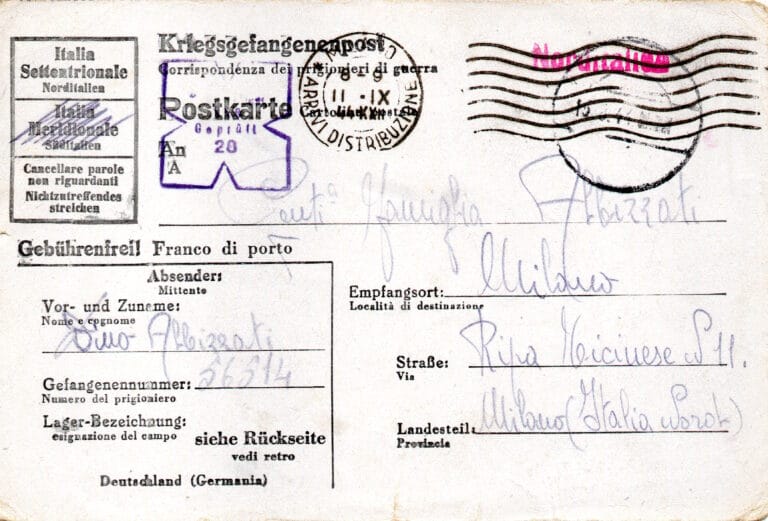 Italia
Settentrionale
Norditalien
Italia
Meridionale
Süditalien
Cancellare parole
non riguardanti
Nichtzutreffendes
streichen
Kriegsgefangenenpost
Corrispondenza dei prigionieri di guerra
Postkarte Cartolina postale
Geprüft
28
MILANO
8-9
11-IX
ARRIVI DISTRIBUZIONE
Norditalien
An
A
Gent.ª Famiglia Albizzati
Gebührenfrei! Franco di porto
Absender:
Mittente
Vor- und Zuname:
Nome e cognome
Dino Albizzati
Gefangenennummer: 56514
Numero del prigioniero
Lager-Bezeichnung:
esignazione del campo
siehe Rückseite
vedi retro
Deutschland (Germania)
Empfangsort: Milano
Località di destinazione
Straße: Ripa Ticinese N 11.
Via
Landesteil: Milano (Italia Nord)
Provincia